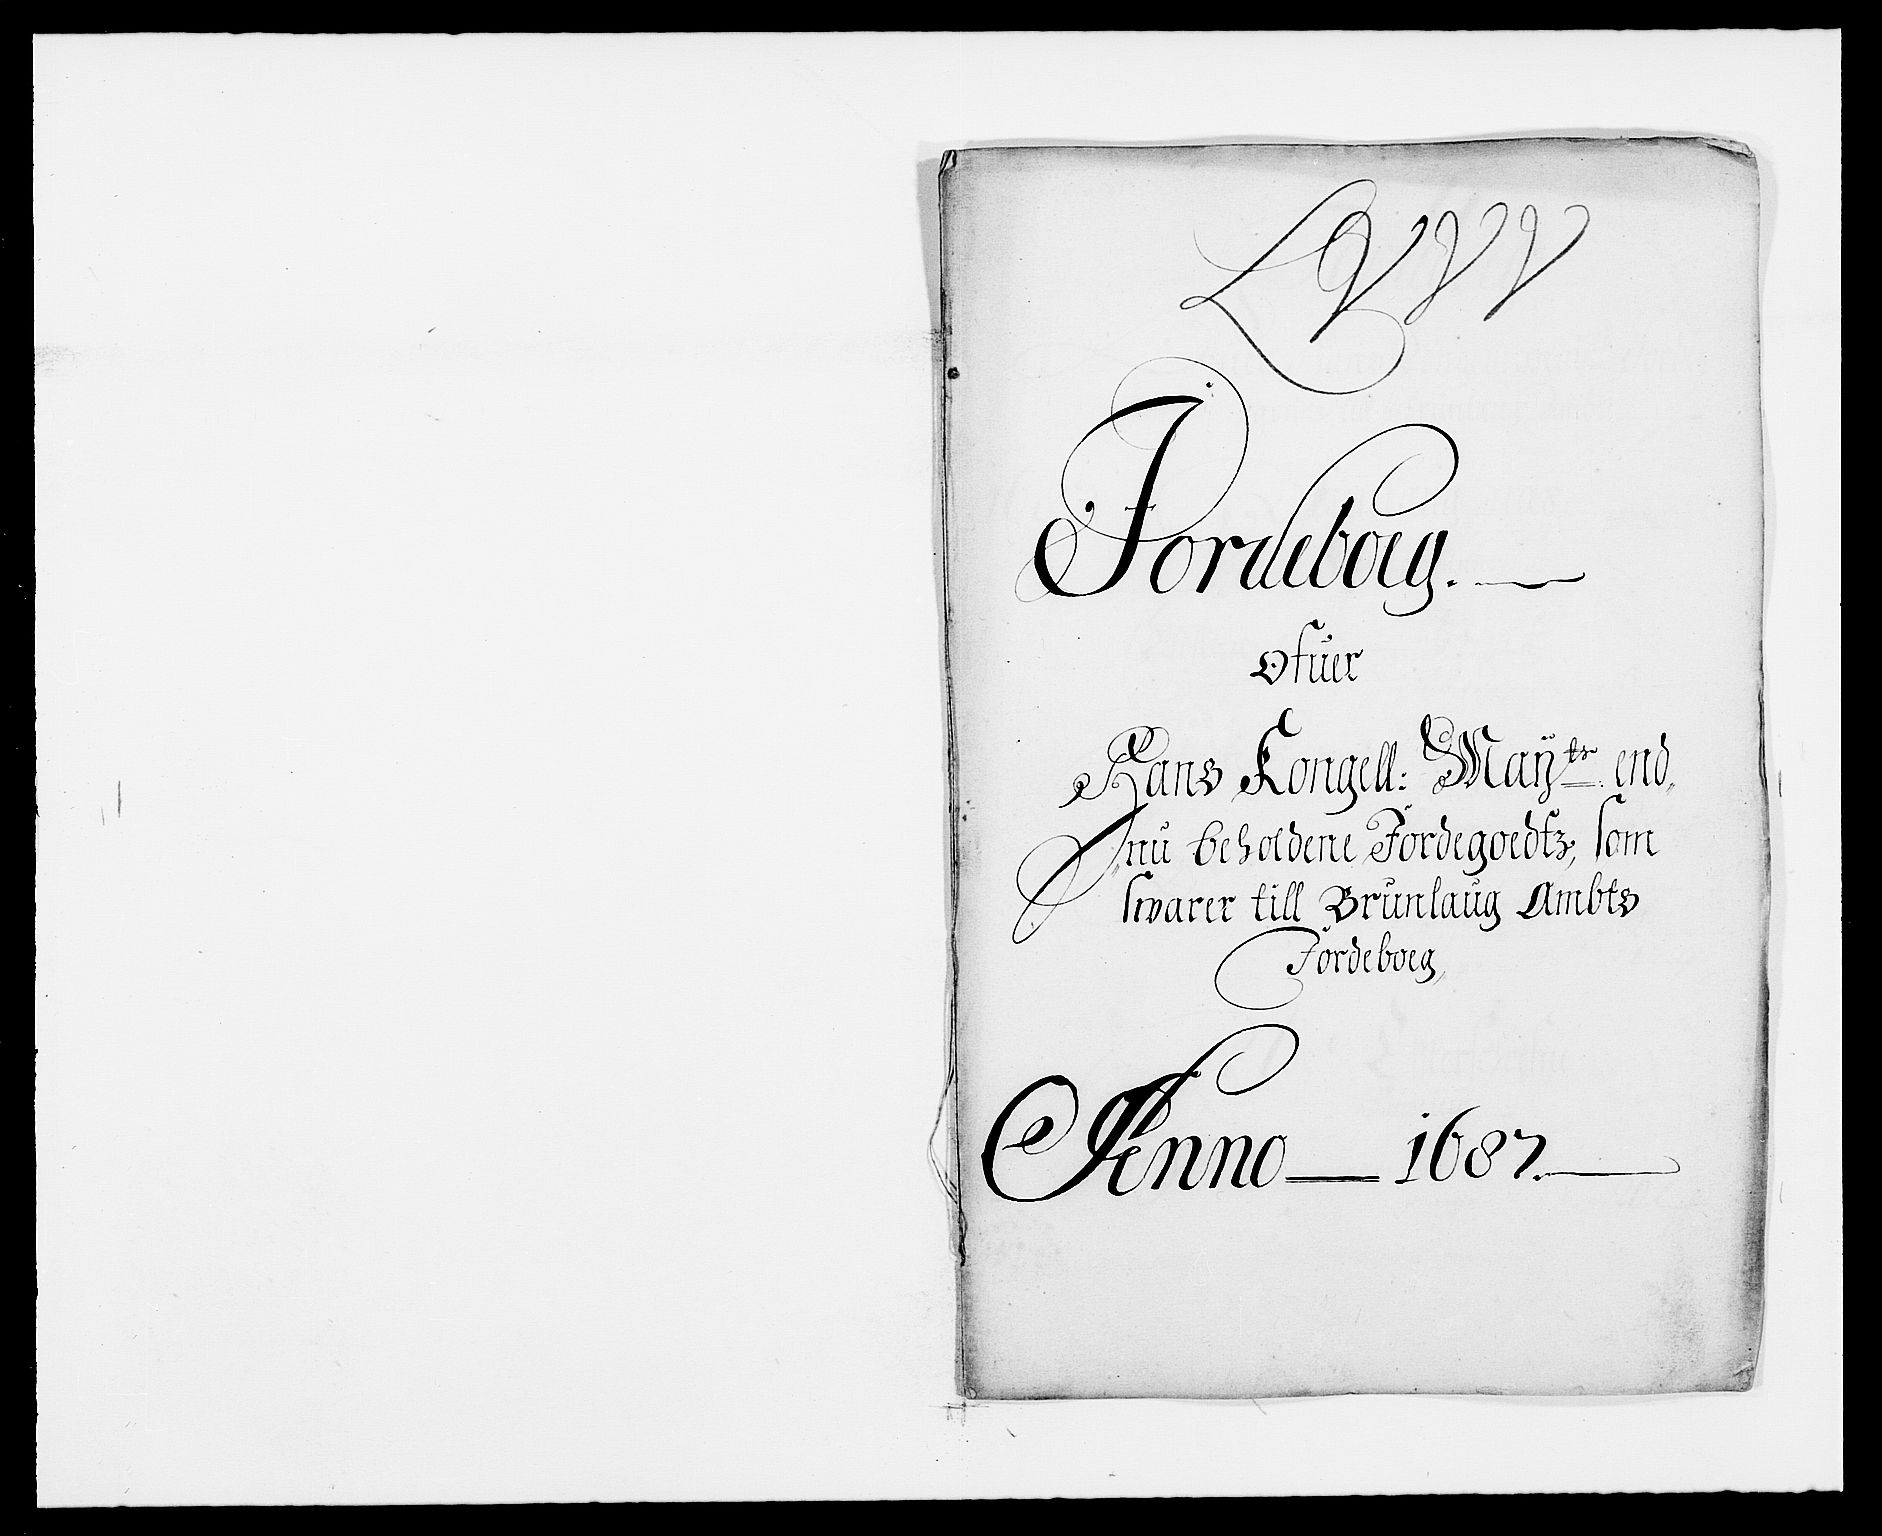 Jordeboeg.
ofuer
Hans Kongell: Maÿts end,,
,,nu beholdene Jordegoedtz, som
swarer till Brunlaug Ambts
Jordeboeg,,
Anno 1687.